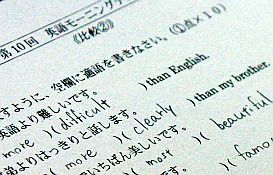 第10回 英語モーニングテ
《比較②》
すように、空欄に適語を書きなさい。(①点×10)
英語より難しいです。
more )( difficult ) than English.
弟よりはっきりと話します。
more )( clearly ) than my brother.
いちばん美しいです。
most )( beautiful
)( famou